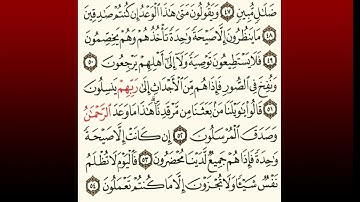 ضَلَٰلٍ مُّبِينٍ ٤٧ وَيَقُولُونَ مَتَىٰ هَٰذَا ٱلْوَعْدُ إِن كُنتُمْ صَٰدِقِينَ
٤٨ مَا يَنظُرُونَ إِلَّا صَيْحَةً وَٰحِدَةً تَأْخُذُهُمْ وَهُمْ يَخِصِّمُونَ
٤٩ فَلَا يَسْتَطِيعُونَ تَوْصِيَةً وَلَآ إِلَىٰٓ أَهْلِهِمْ يَرْجِعُونَ ٥٠
وَنُفِخَ فِى ٱلصُّورِ فَإِذَا هُم مِّنَ ٱلْأَجْدَاثِ إِلَىٰ رَبِّهِمْ يَنسِلُونَ
٥١ قَالُوا۟ يَٰوَيْلَنَا مَنۢ بَعَثَنَا مِن مَّرْقَدِنَا ۜ هَٰذَا مَا وَعَدَ ٱلرَّحْمَٰنُ
وَصَدَقَ ٱلْمُرْسَلُونَ ٥٢ إِن كَانَتْ إِلَّا صَيْحَةً
وَٰحِدَةً فَإِذَا هُمْ جَمِيعٌ لَّدَيْنَا مُحْضَرُونَ ٥٣ فَٱلْيَوْمَ لَا تُظْلَمُ
نَفْسٌ شَيْـًٔا وَلَا تُجْزَوْنَ إِلَّا مَا كُنتُمْ تَعْمَلُونَ ٥٤